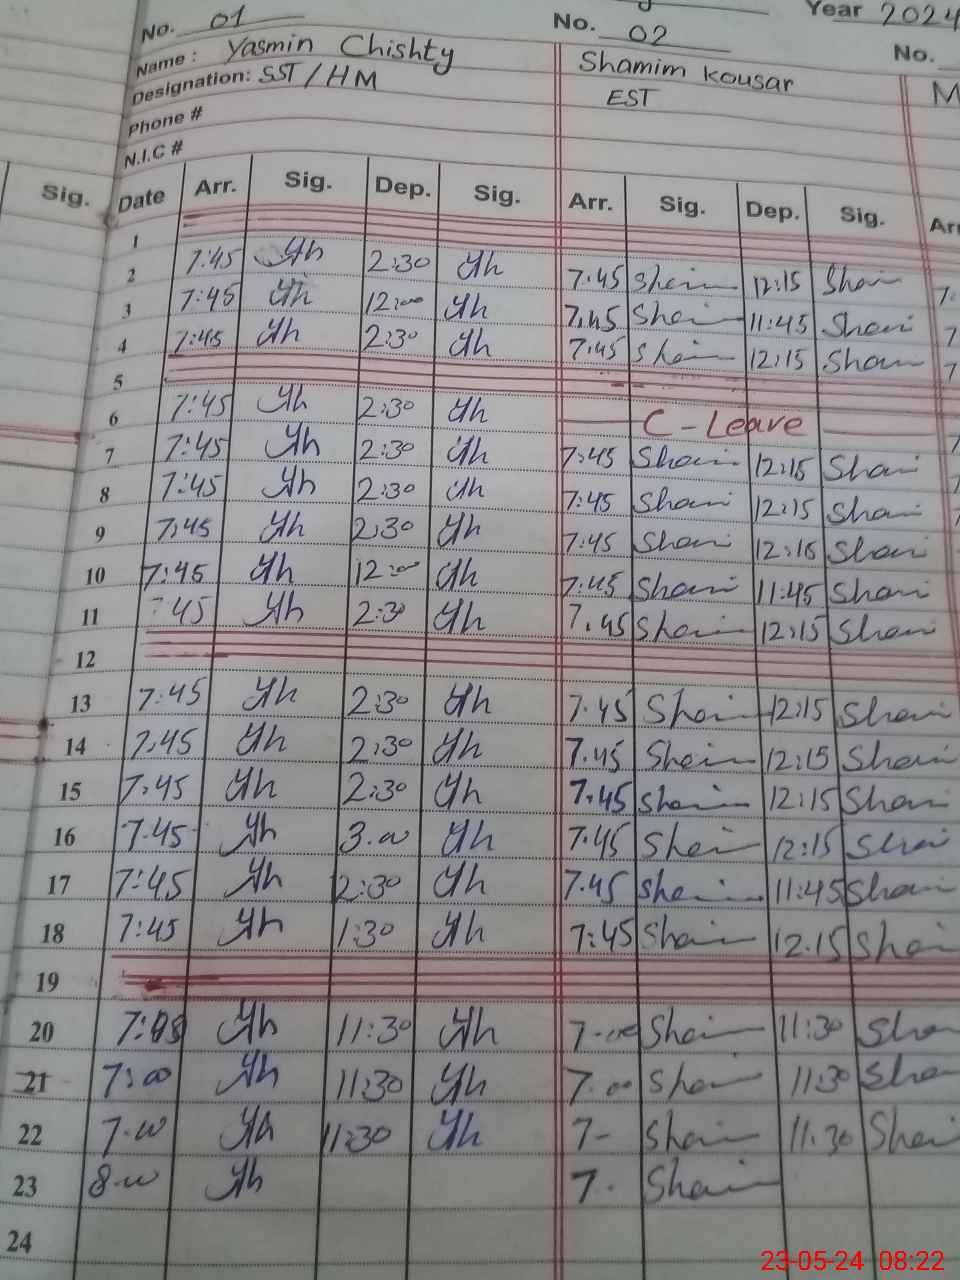 Year 2024
No. 01 No. 02 No.
Name: Yasmin Chishty Shamim Kousar M
Designation: SST/HM EST
Phone #
N.I.C #
Sig. Date Arr. Sig. Dep. Sig. Arr. Sig. Dep. Sig. Arr
1
2 7:45 Yh 2:30 Yh 7.45 Sham 12:15 Sham 7.
3 7:45 Yh 12:00 Yh 7.45 Sham 11:45 Sham 7
4 7:45 Yh 2:30 Yh 7.45 Sham 12:15 Sham 7
5
6 7:45 Yh 2:30 Yh C-Leave
7 7:45 Yh 2:30 Yh 7.45 Sham 12:15 Sham
8 7:45 Yh 2:30 Yh 7:45 Sham 12:15 Sham
9 7:45 Yh 2:30 Yh 7:45 Sham 12:15 Sham
10 7:45 Yh 12:00 Yh 7:45 Sham 11:45 Sham
11 :45 Yh 2:30 Yh 7.45 Sham 12:15 Sham
12
13 7:45 Yh 2:30 Yh 7.45 Sham 12:15 Sham
14 7:45 Yh 2:30 Yh 7.45 Sham 12:15 Sham
15 7:45 Yh 2:30 Yh 7.45 Sham 12:15 Sham
16 7.45 Yh 3.00 Yh 7.45 Sham 12:15 Sham
17 7:45 Yh 2:30 Yh 7.45 Sham 11:45 Sham
18 7:45 Yh 1:30 Yh 7:45 Sham 12.15 Sham
19
20 Yh 11:30 Yh 7.00 Sham 11:30 Sha
21 7:00 Yh 11:30 Yh 7.00 Sham 11:30 Sha
22 7.00 Yh 11:30 Yh 7- Sham 11.30 Sham
23 8.00 Yh 7. Sham
24
23-05-24 08:22